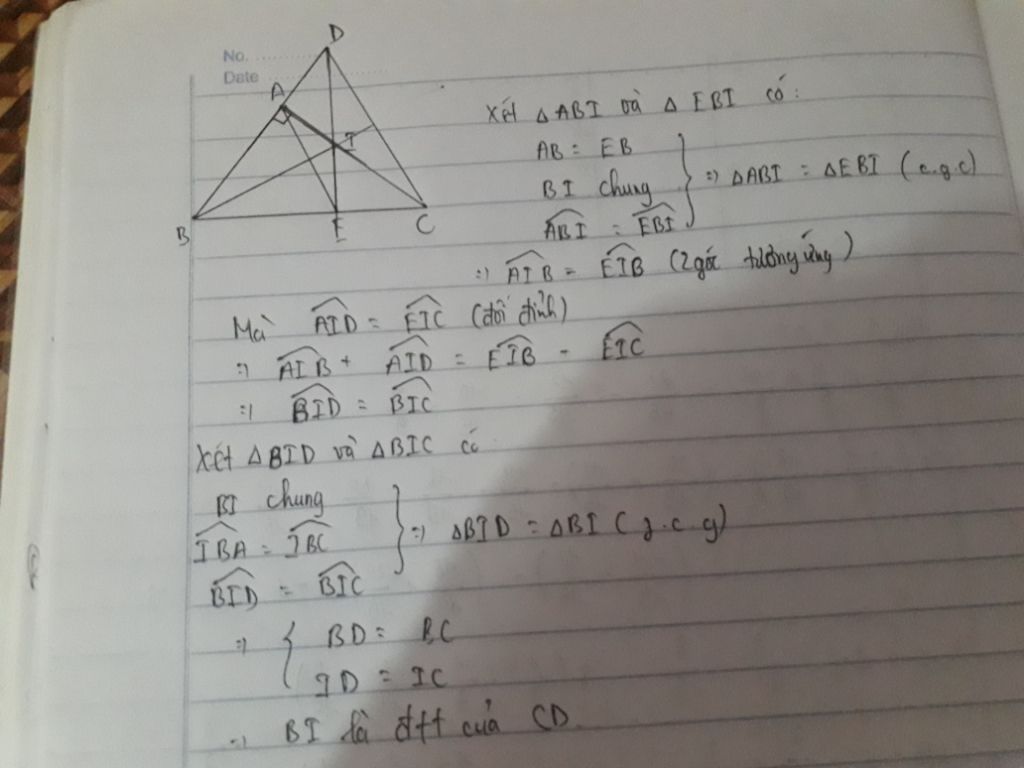 No.
Date
D
A
I
B
E
C
Xét △ABI và △EBI có:
AB = EB
BI chung
ABI = EBI
} => △ABI = △EBI (c.g.c)
=> AIB = EIB (2 góc tương ứng)
Mà AID = EIC (đối đỉnh)
=> AIB + AID = EIB - EIC
=> BID = BIC
Xét △BID và △BIC có
BI chung
IBA = IBC
BID = BIC
} => △BID = △BI (g.c.g)
=> { BD = BC
ID = IC
=> BI là đtt của CD